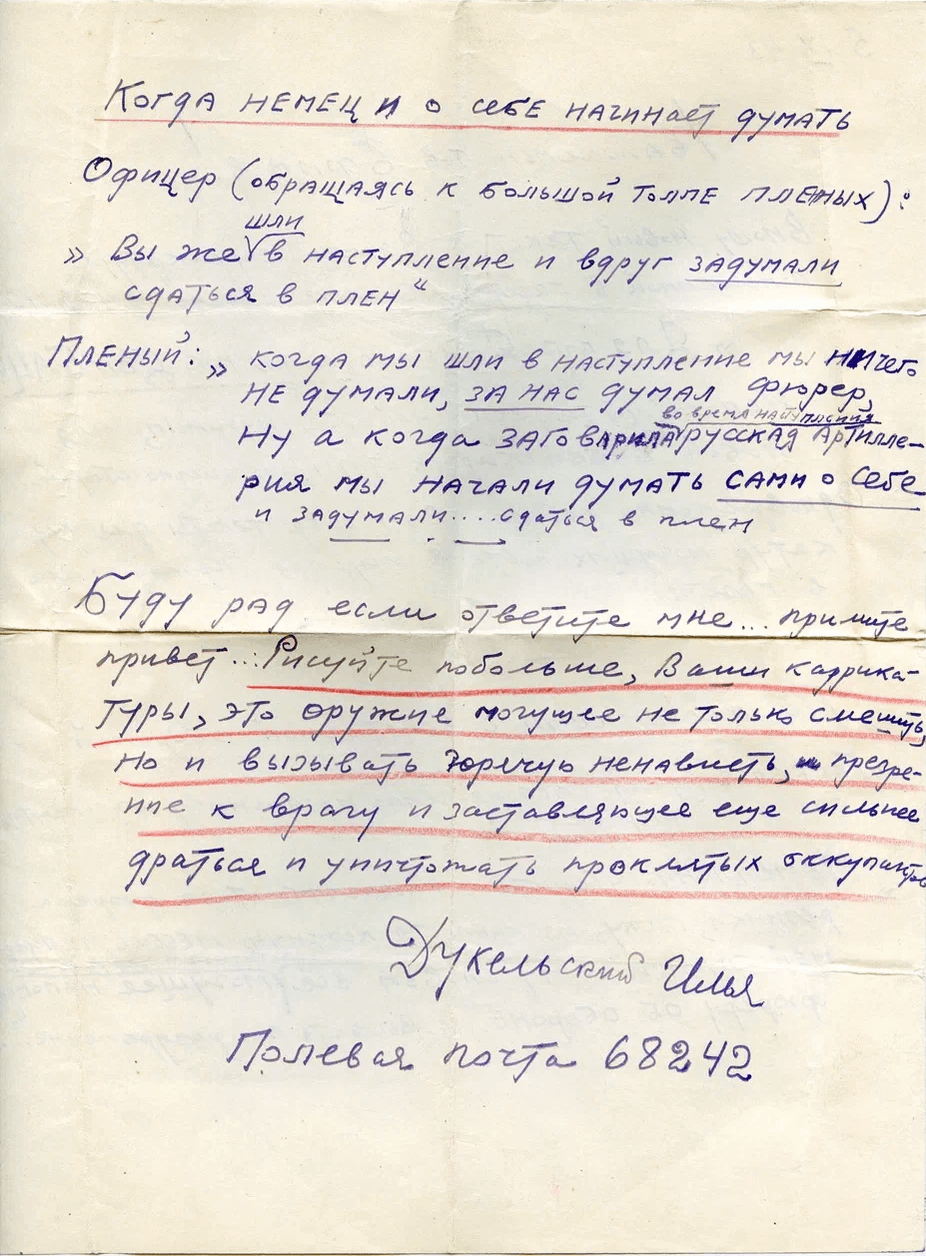 Когда немец и о себе начинает думать
Офицер (обращаясь к большой толпе пленых):
шли
„ Вы же в наступление и вдруг задумали
сдаться в плен“
Пленый: „ когда мы шли в наступление мы ничего
не думали, за нас думал фюрер,
во время наступления
Ну а когда заговарила русская артилле-
рия мы начали думать сами о себе
и задумали.... сдаться в плен
Буду рад если ответите мне... примите
привет... Рисуйте побольше, Ваши каррика-
туры, это оружие могущее не только смешить,
но и вызывать горячую ненависть, презре-
ние к врагу и заставляющее еще сильнее
драться и уничтожать проклятых оккупантов
Дукельский Илья
Полевая почта 68242